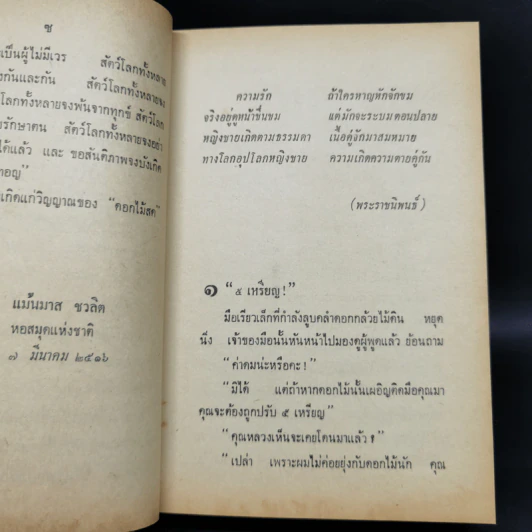 ซ
เป็นผู้ไม่มีเวร สัตว์โลกทั้งหลาย
งกันและกัน สัตว์โลกทั้งหลายจง
โลกทั้งหลายจงพ้นจากทุกข์ สัตว์โลก
รักษาตน สัตว์โลกทั้งหลายจงอย่า
ได้แล้ว และ ขอสันติภาพจงบังเกิด
ทอญ”
เกิดแก่วิญญาณของ “ดอกไม้สด”
แม้นมาส ชวลิต
หอสมุดแห่งชาติ
๗ มีนาคม ๒๕๑๖
ความรัก ถ้าใครหาญหักจักขม
จริงอยู่ดูหน้าชื่นชม แต่มักจะระบมตอนปลาย
หญิงชายเกิดตามธรรมดา เนื้อคู่จักมาสมหมาย
ทางโลกอุปโลกหญิงชาย ความเกิดความตายคู่กัน
(พระราชนิพนธ์)
๑ “๕ เหรียญ!”
มือเรียวเล็กที่กำลังลูบคลำดอกกล้วยไม้ดิน หยุด
นิ่ง เจ้าของมือนั้นหันหน้าไปมองดูผู้พูดแล้ว ย้อนถาม
“ค่าดมน่ะหรือคะ!”
“มิได้ แต่ถ้าหากดอกไม้นั้นเผอิญติดมือคุณมา
คุณจะต้องถูกปรับ ๕ เหรียญ”
“คุณหลวงเห็นจะเคยโดนมาแล้ว!”
“เปล่า เพราะผมไม่ค่อยยุ่งกับดอกไม้นัก คุณ